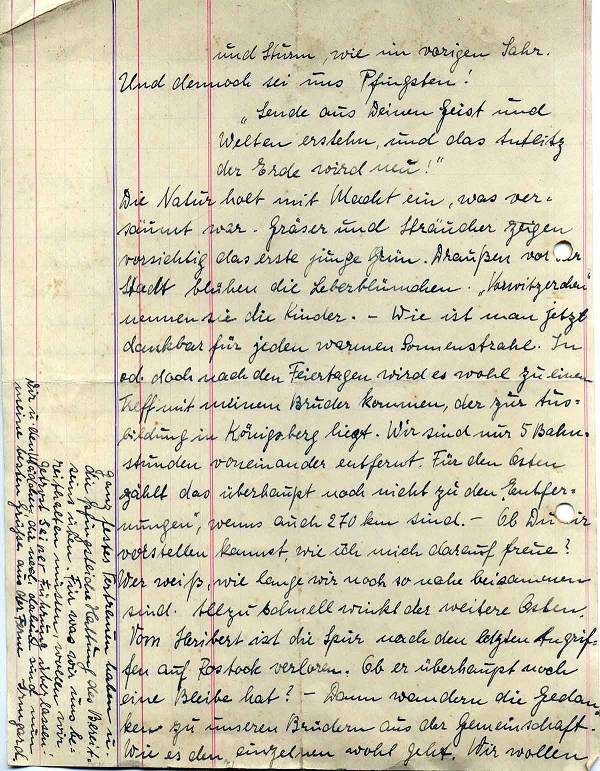 und Sturm, wie im vorigen Jahr.
Und dennoch sei uns Pfingsten!
„Sende aus Deinen Geist und
Welten erstehn, und das Antlitz
der Erde wird neu!"
Die Natur holt mit Macht ein, was ver-
säumt war. Gräser und Sträucher zeigen
vorsichtig das erste junge Grün. Draußen vor der
Stadt blühen die Leberblümchen. „Vorwitzerchen"
nennen sie die Kinder. – Wie ist man jetzt
dankbar für jeden warmen Sonnenstrahl. In
od. doch nach den Feiertagen wird es wohl zu einem
Treff mit meinem Bruder kommen, der zur Aus-
bildung in Königsberg liegt. Wir sind nur 5 Bahn-
stunden voneinander entfernt. Für den Osten
zählt das überhaupt noch nicht zu den „Entfer-
nungen", wenns auch 270 km sind. – Ob Du Dir
vorstellen kannst, wie ich mich darauf freue?
Wer weiß, wie lange wir noch so nahe beisammen
sind. Allzu schnell winkt der weitere Osten.
Vom Heribert ist die Spur nach den letzten Angrif-
fen auf Rostock verloren. Ob er überhaupt noch
eine Bleibe hat? – Dann wandern die Gedan-
ken zu unseren Brüdern aus der Gemeinschaft.
Wie es den „einzelnen wohl geht. Wir wollen
ganz festes Vertrauen haben u.
die pfingstliche Haltung des Bereit-
seins üben. Für was wir uns be-
reithalten müssen, wollen wir
getrost Seiner Führung überlassen.
Dir u. den Mädchen, die noch daheim sind nun
meine besten Grüße aus der Ferne Irmgard.